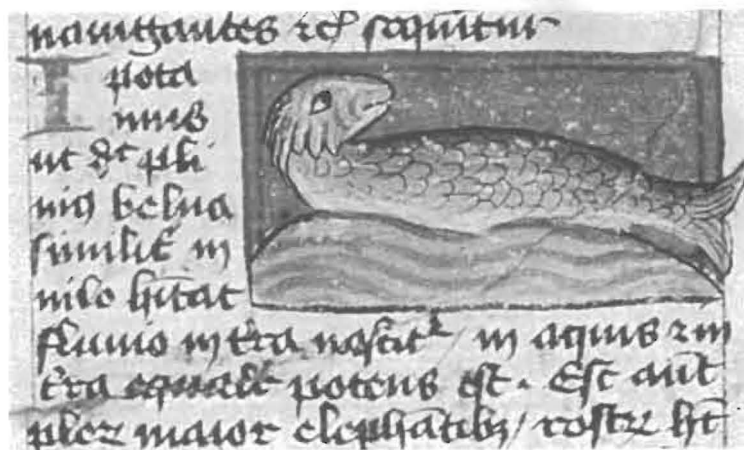 nauigantes ⁊c̄ sequūtur
Ipota
mus
ut dr̄ pli
niꝰ belua
similit̄ in
nilo hītat
fluuio in t̄ra nascit᷑ / in aquis ⁊ in
t̄ra equalr̄ potens est. Est aūt
pler̄ maior elephātibꝫ / rostꝝ hr̄